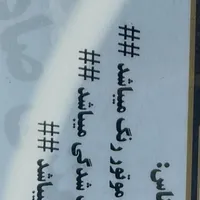 اس:
موتور رنگ میباشد ##
شدگی میباشد ##
میباشد ##